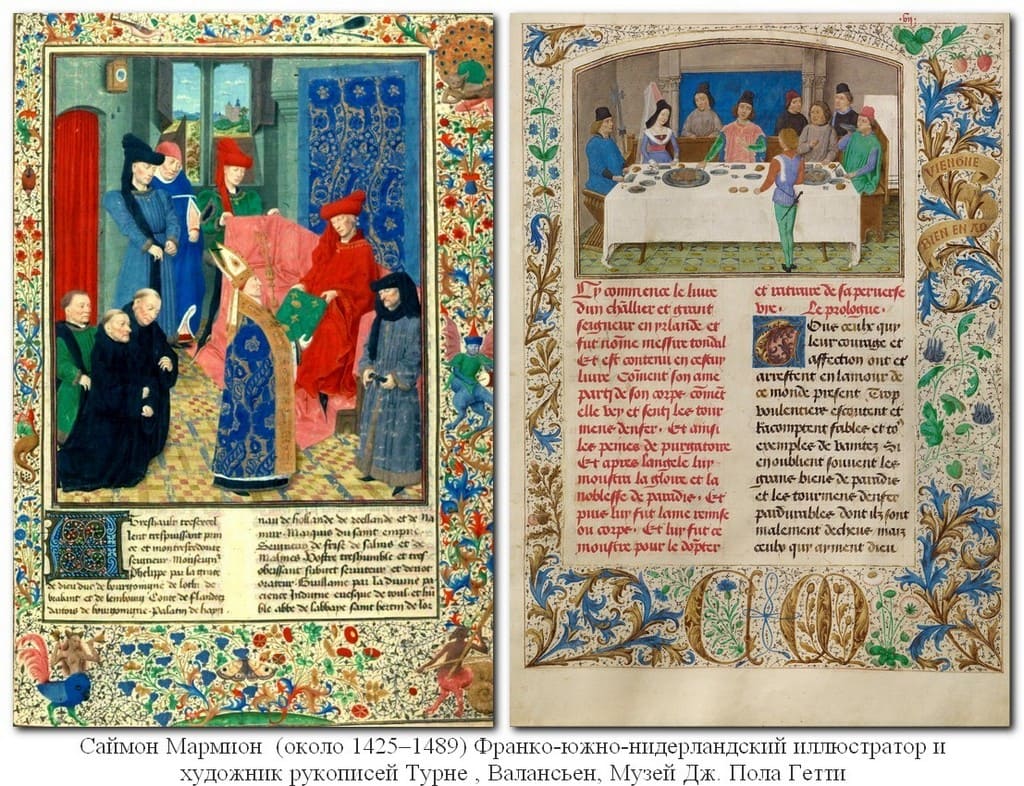 Treshault tresexcel
lent trespuissant prin
ce et montresredoute
seigneur Monseign
Phelippe par la grace
de dieu duc de bourgoingne de loth de
brabant et de lembourg Conte de flandres
dartois de bourgoingne Palatin de hayn
nau de hollande de zeellande et de Na
mur Marquis du saint empire
Seigneur de frise de salins et de
Malines Vostre treshumble et tres
obeissant subget serviteur et devot
orateur Guillame par la divine pa
cience Indigne evesque de toul et hu
ble abbe de labbaye saint bertin de
VIENGNE
BIEN EN AD
Cy commence le livre
dun chlīier et grant
seigneur en yrlande et
fut nōme messire tondal
Et est contenu en cestuy
livre Cōment son ame
party de son corps. cōmēt
elle vey et senty les tour
mens denfer. Et ainsi
les peines de purgatoire
Et apres langele luy
monstra la gloire et la
noblesse de paradis. Et
puis luy fut lame remise
ou corps. Et luy fut ce
monstre pour le dōpter
et retraire de sa perverse
vye. Le prologue.
Tous ceulx quy
leur courage et
affection ont et
arrestent en lamour de
ce monde present Trop
voulentiers escoutent et
Racomptent fables et toˢ
exemples de vanitez Si
en oublient souvent les
grans biens de paradis
et les tourmens denfer
pardurables dont ilz sont
malement decheus mais
ceulx quy ayment dieu
Саймон Мармион (около 1425–1489) Франко-южно-нидерландский иллюстратор и
художник рукописей Турне , Валансьен, Музей Дж. Пола Гетти